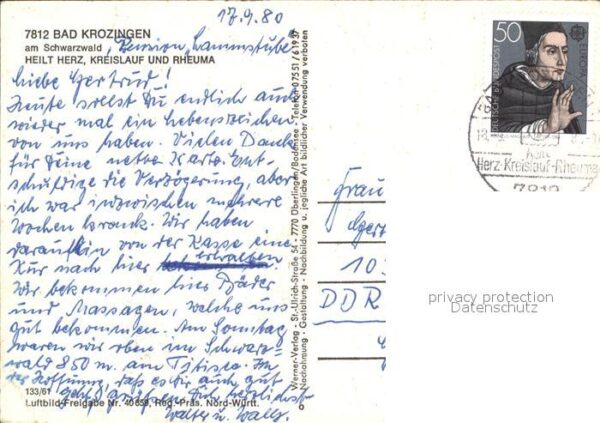 17.9.80
7812 BAD KROZINGEN
am Schwarzwald, Pension, Lammstube
HEILT HERZ, KREISLAUF UND RHEUMA
Liebe Gertrud!
Heute sollst Du endlich auch
wieder mal ein Lebenszeichen
von uns haben. Vielen Dank
für Deine nette Karte. Ent-
schuldige die Verzögerung, aber
ich war inzwischen mehrere
Wochen krank. Wir haben
daraufhin von der Kasse eine
Kur nach hier erhalten.
Wir bekommen hier Bäder
und Massagen, welche uns
gut bekommen. Am Sonntag
waren wir oben im Schwarz-
wald 850 m. am Titisee. In
der Hoffnung, daß es Dir auch gut
geht grüßen Dich herzlichst
Walter u.
133/61
Luftbild-Freigabe Nr. 40659, Reg.-Präs. Nord-Württ.
Werner-Verlag - St.-Ulrich-Straße 54 - 7770 Überlingen/Bodensee - Telefon 07551/61937
Nachahmung - Gestaltung - Nachbildung u. jegliche Art bildlicher Verwendung verboten
50
DEUTSCHE BUNDESPOST
EUROPA
Herz-Kreislauf-Rheuma
7812
Frau
10.
DDR
privacy protection
Datenschutz